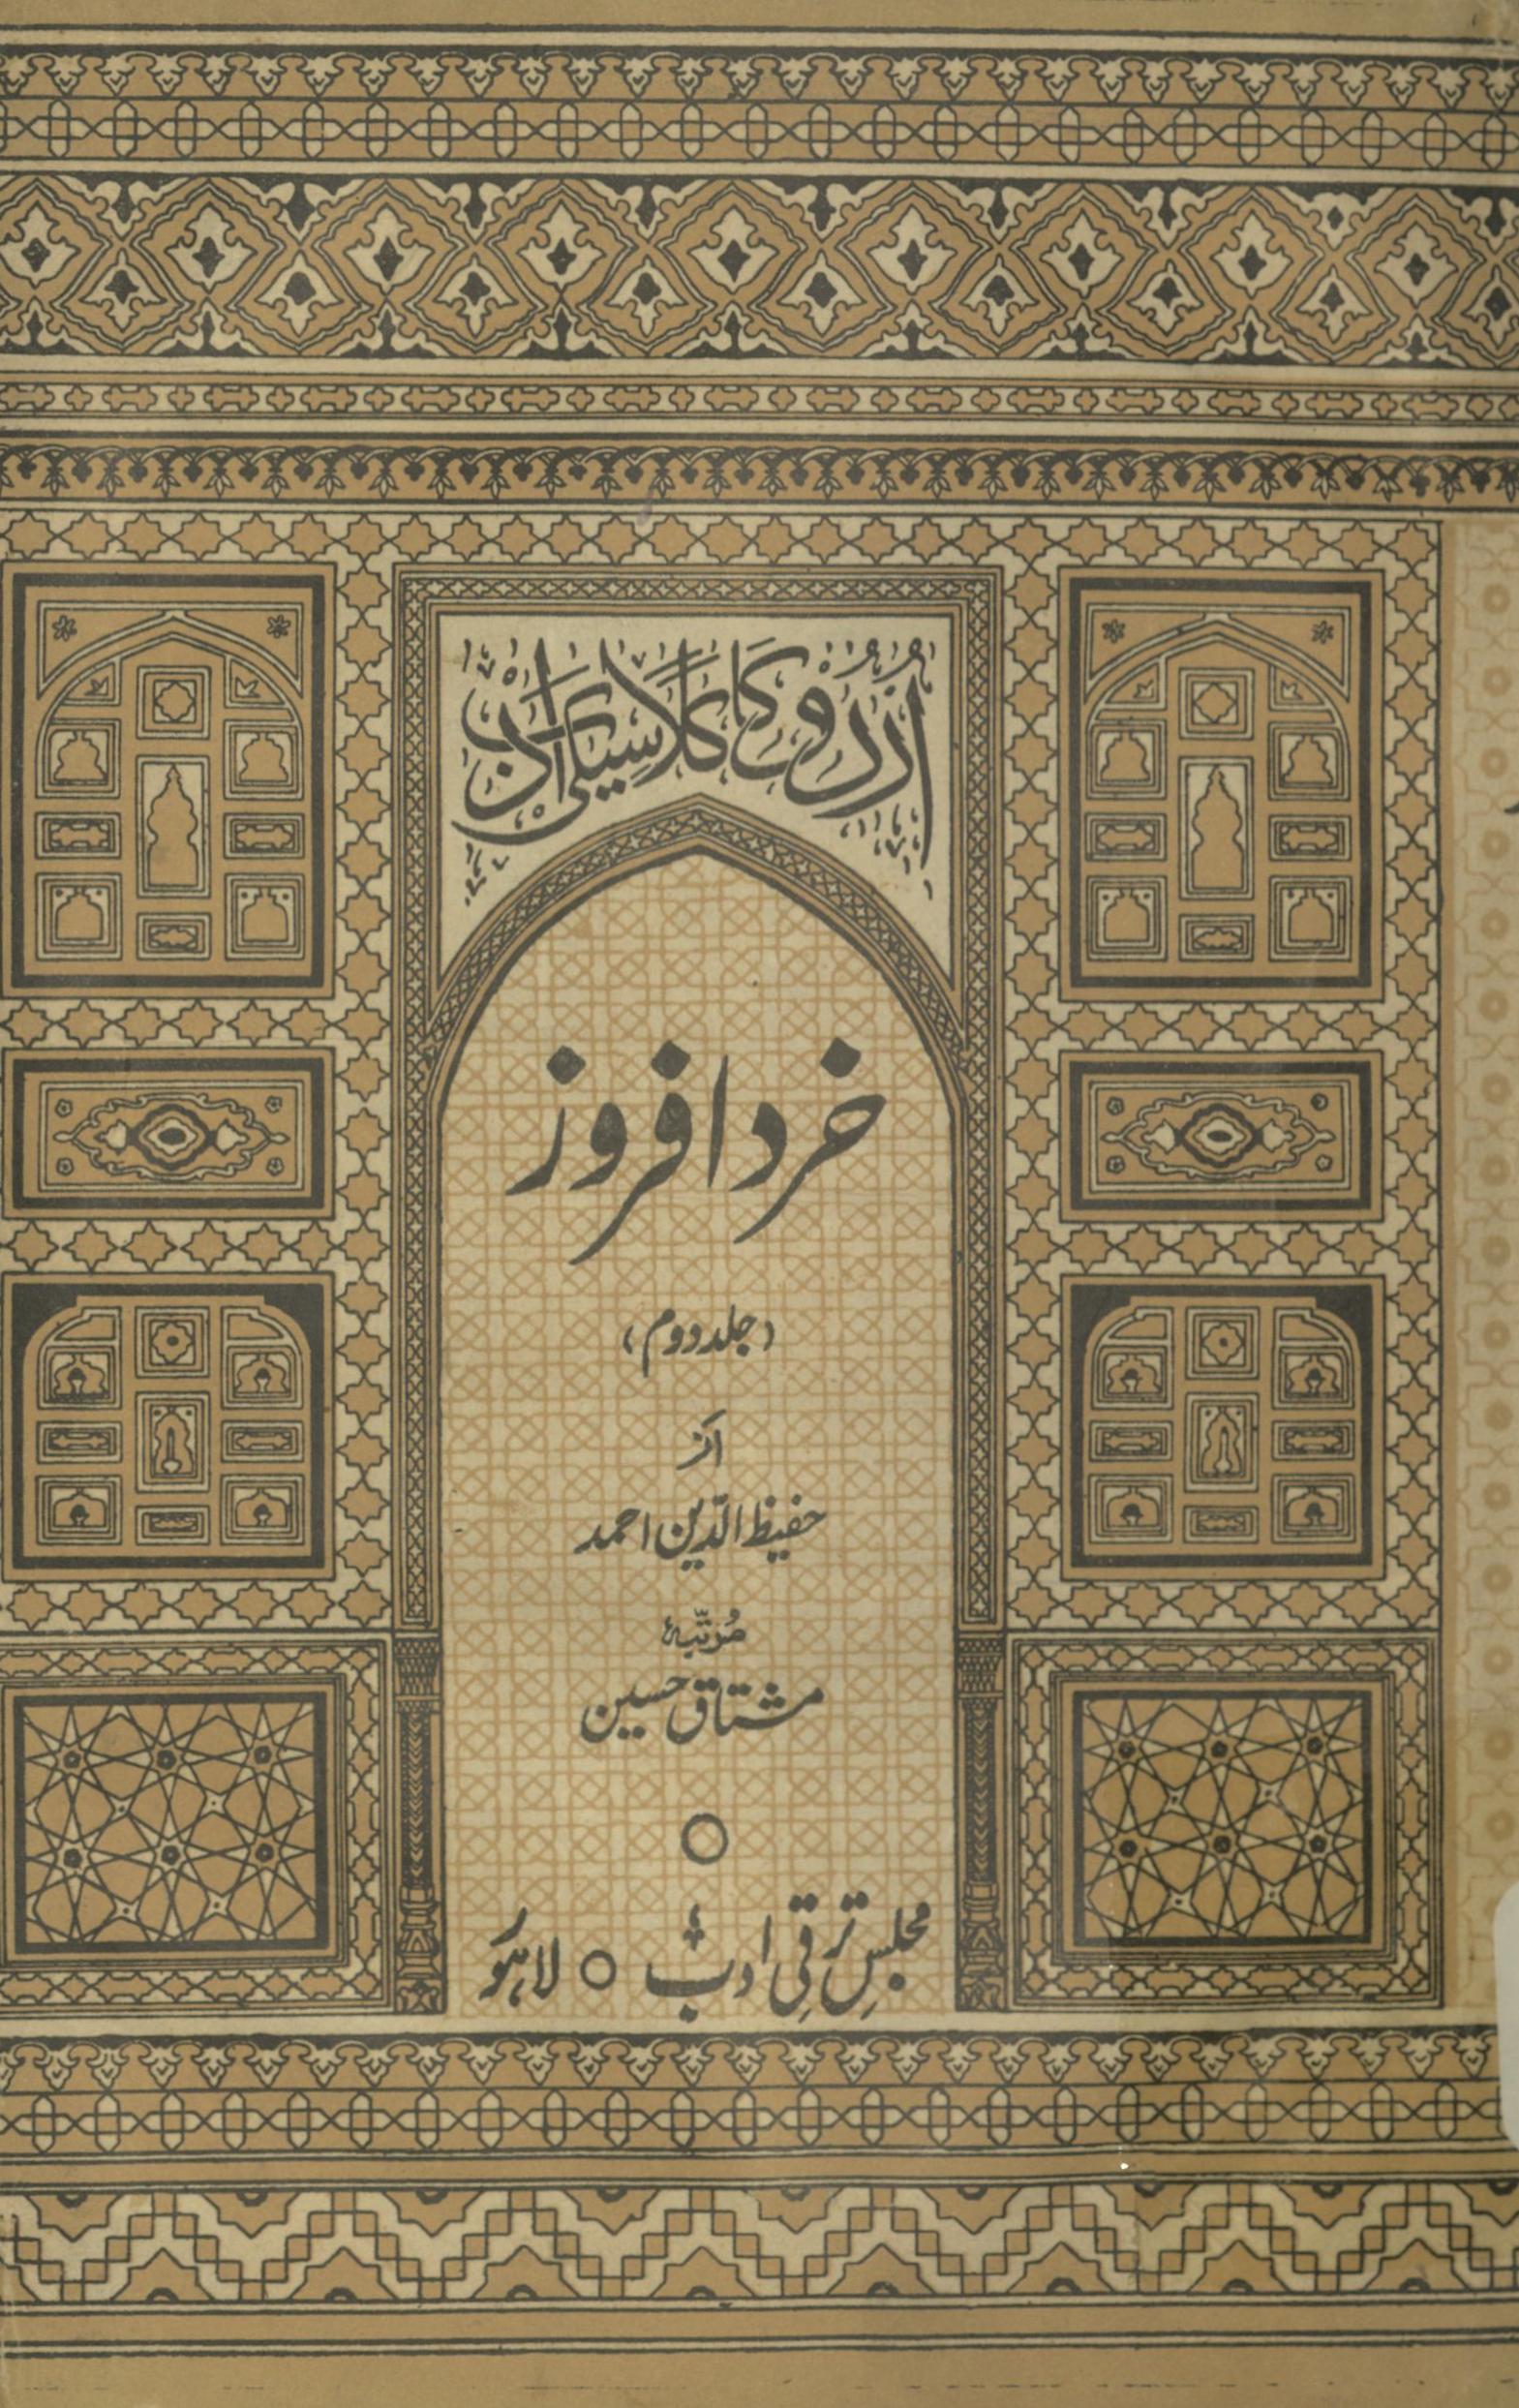 اردو کا کلاسیکی ادب
خرد افروز
(جلد دوم)
از
حفیظ الدّین احمد
مُرتّبہٗ
مشتاق حسین
مجلسِ ترقیِ ادب ○ لاہور